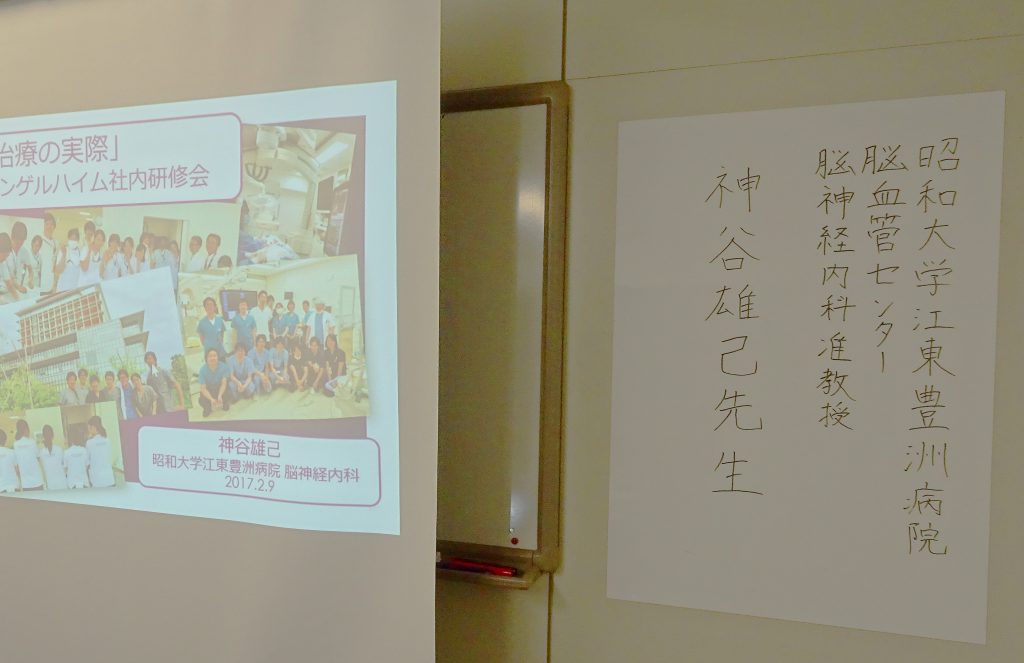 治療の実際」
ンゲルハイム社内研修会
神谷雄己
昭和大学江東豊洲病院 脳神経内科
2017.2.9
昭和大学江東豊洲病院
脳血管センター
脳神経内科准教授
神谷雄己先生